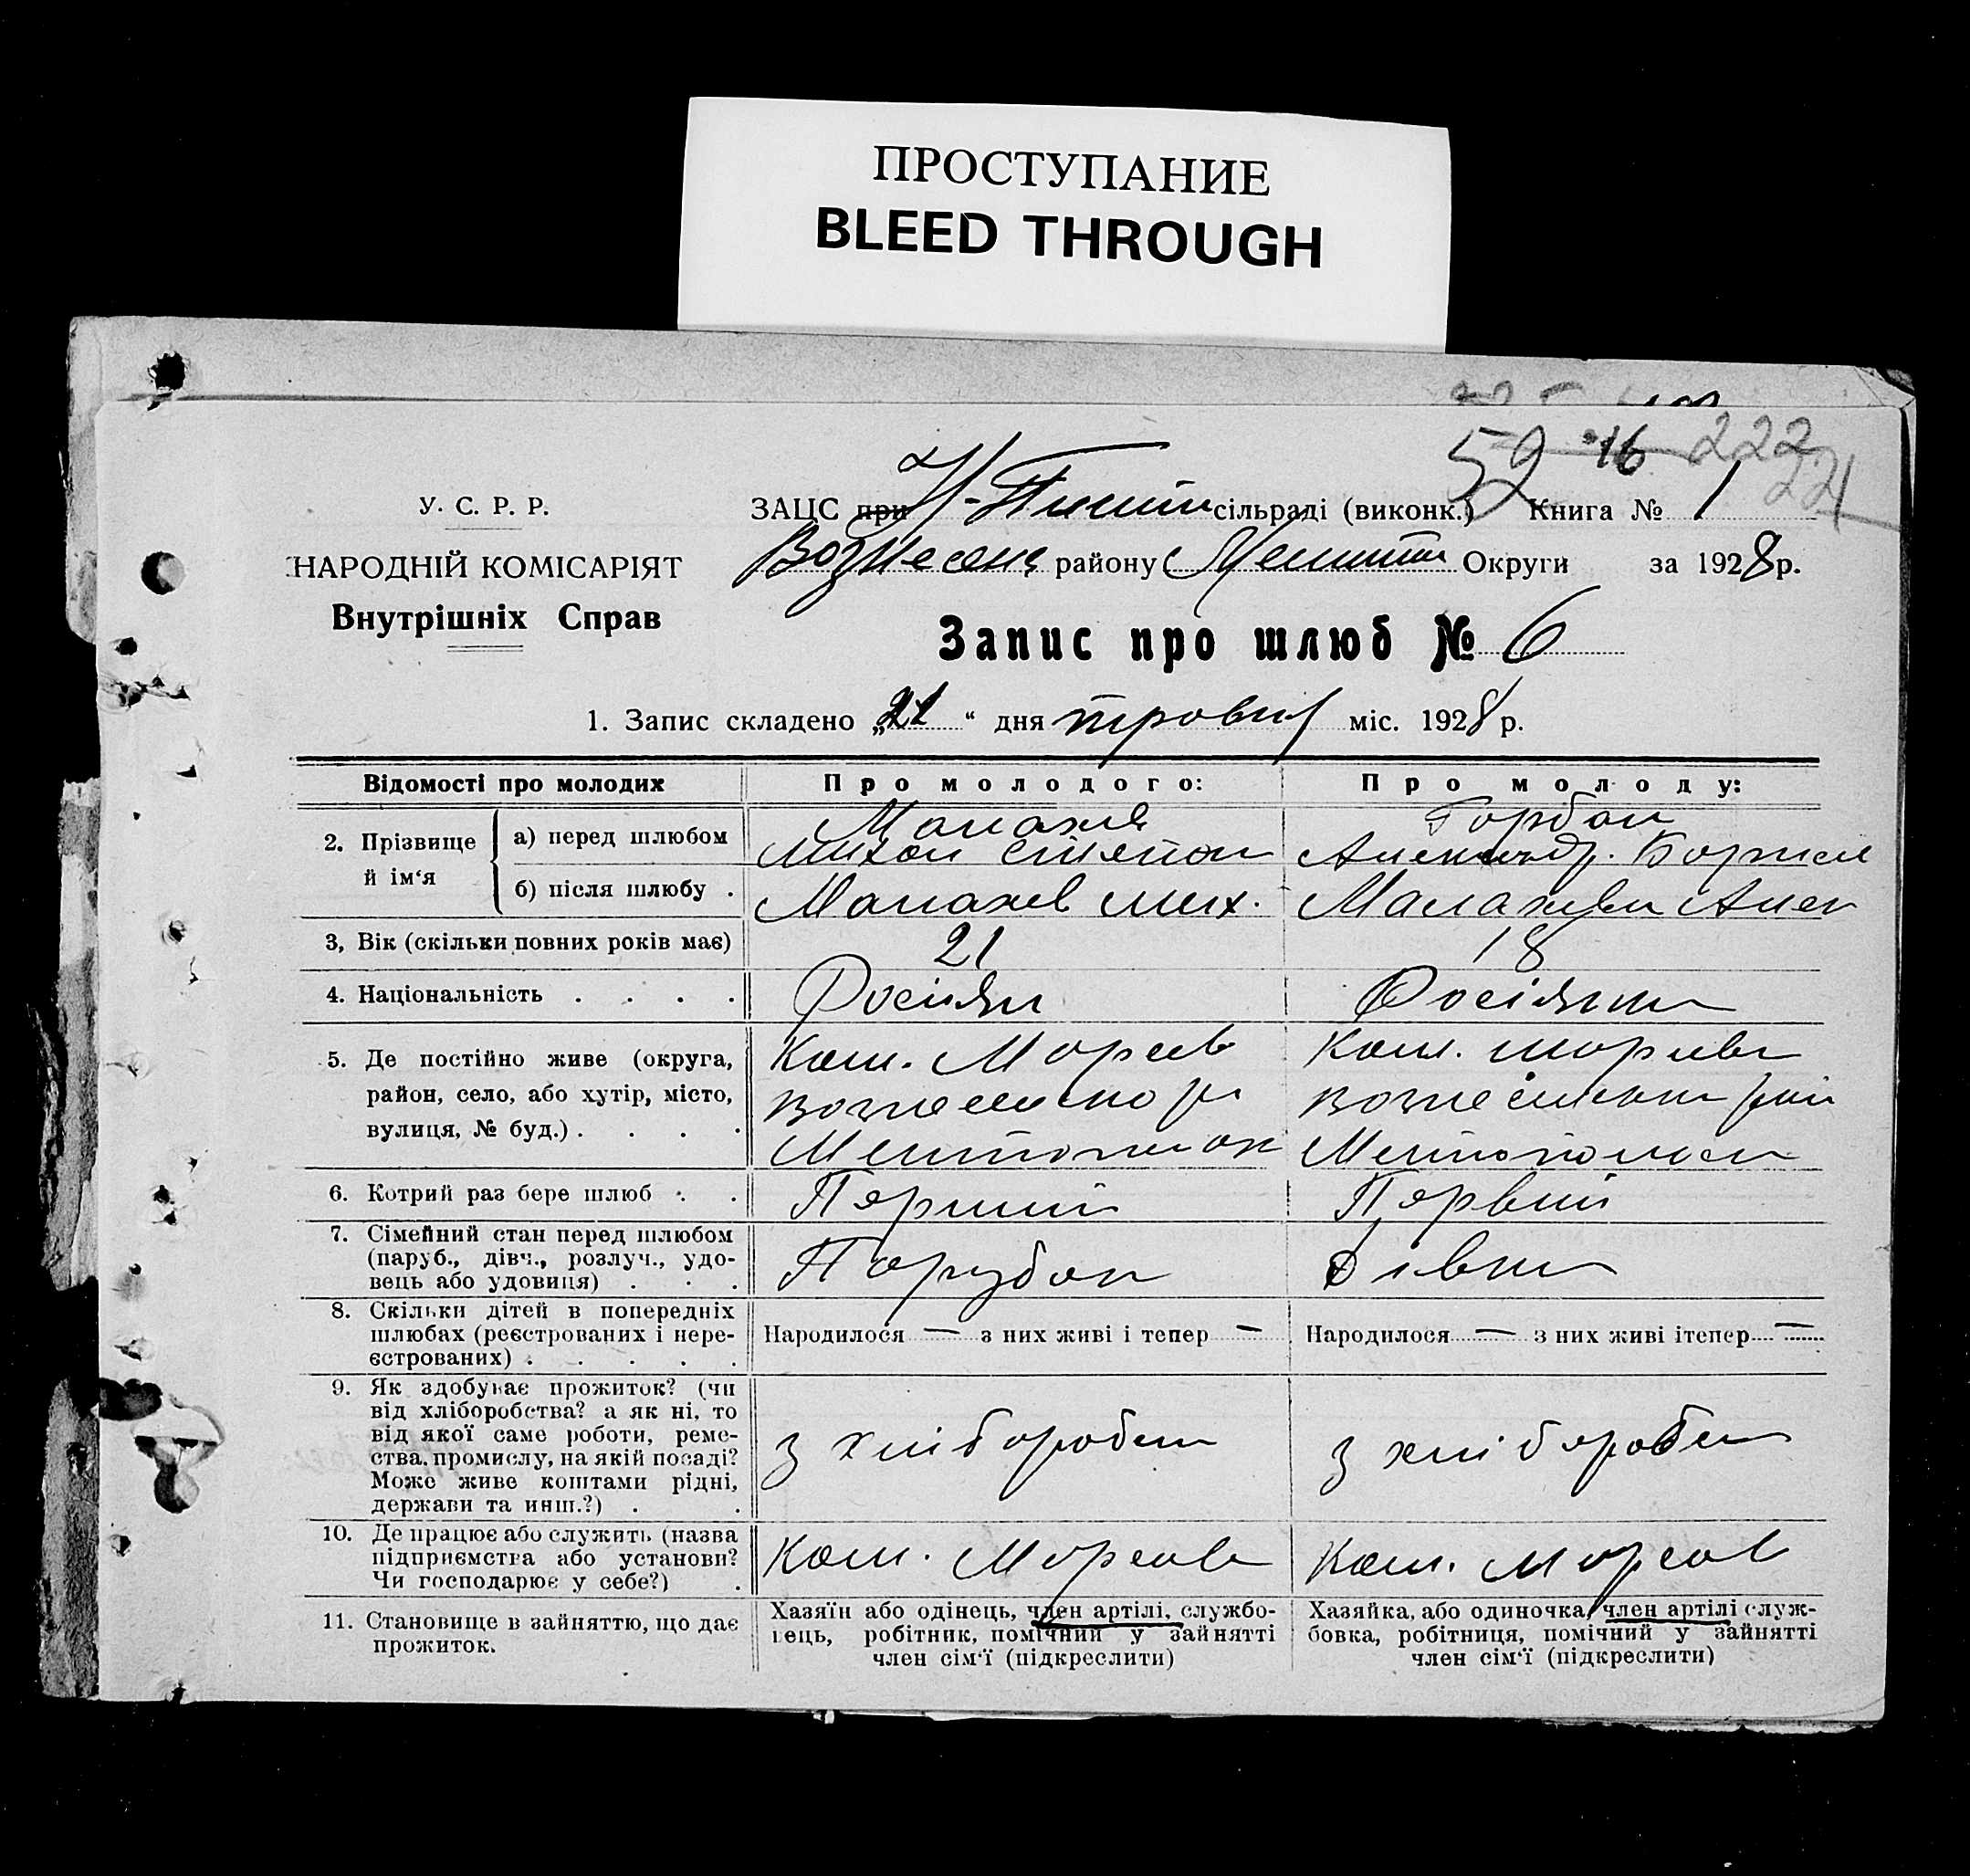 ПРОСТУПАНИЕ
BLEED THROUGH
59 16 222
221
У. С. Р. Р.
ЗАЦС при сільраді (виконк.) Книга № 1
НАРОДНІЙ КОМІСАРІЯТ
Вознесенс району Меліт Округи за 1928 р.
Внутрішніх Справ
Запис про шлюб № 6
1. Запис складено „21“ дня травня міс. 1928 р.
Відомості про молодих Про молодого: Про молоду:
2. Прізвище й ім‘я
а) перед шлюбом
Малахів Горбан
Михаил Степан Александр. Борисов
б) після шлюбу .
Малахов Мих. Малахова Алек
3, Вік (скільки повних років має) 21 18
4. Національність . . . . Росіян Росіянка
5. Де постійно живе (округа, Ком.
район, село, або хутір, місто,
вулиця, № буд.) . . . .
Ком.
6. Котрий раз бере шлюб . . Перший Первий
7. Сімейний стан перед шлюбом
(паруб., дівч., розлуч., удо-
вець або удовиця) . . . Парубок дівка
8. Скільки дітей в попередніх
шлюбах (реєстрованих і нере-
єстрованих) . . . . .
Народилося — з них живі і тепер — Народилося — з них живі ітепер —
9. Як здобуває прожиток? (чи
від хліборобства? а як ні, то
від якої саме роботи, реме-
ства, промислу, на якій посаді?
Може живе коштами рідні,
держави та инш.?) . .
з хлібороб з хлібороб
10. Де працює або служить (назва
підприємства або установи?
Чи господарює у себе?) .
Ком. Ком.
11. Становище в зайняттю, що дає
прожиток.
Хазяїн або одінець, член артілі, службо-
вець, робітник, помічний у зайнятті
член сім‘ї (підкреслити)
Хазяйка, або одиночка, член артілі служ-
бовка, робітниця, помічний у зайнятті
член сім‘ї (підкреслити)